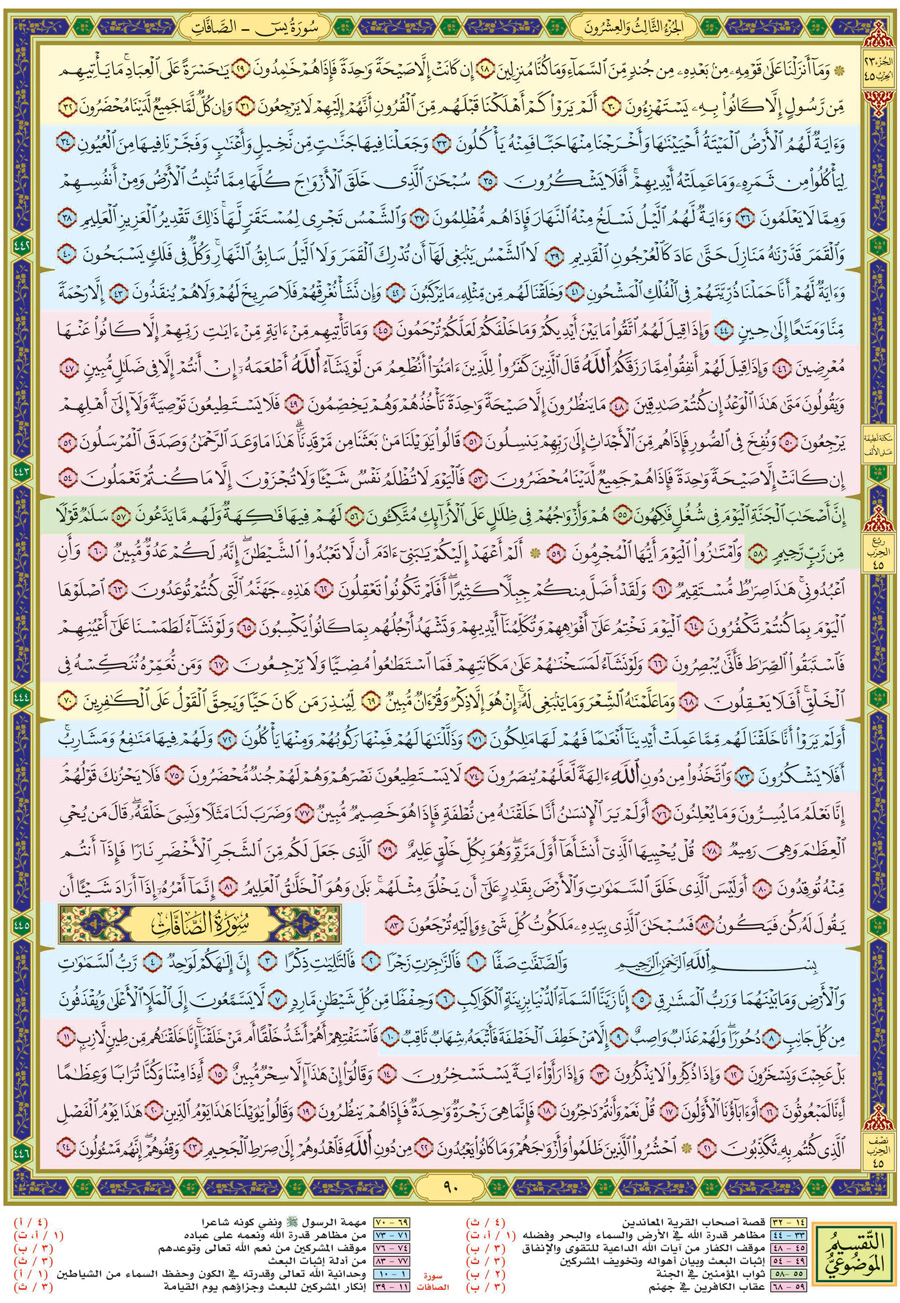 الجُزْءُ الثَّالِثُ وَالعِشْرُونَ
سُورَةُ يسٓ – الصَّافَّاتِ
الجُزْءُ ٢٣
الحِزْبُ ٤٥
۞ وَمَآ أَنزَلْنَا عَلَىٰ قَوْمِهِۦ مِنۢ بَعْدِهِۦ مِن جُندٍ مِّنَ ٱلسَّمَآءِ وَمَا كُنَّا مُنزِلِينَ ٢٨ إِن كَانَتْ إِلَّا صَيْحَةً وَٰحِدَةً فَإِذَا هُمْ خَٰمِدُونَ ٢٩ يَٰحَسْرَةً عَلَى ٱلْعِبَادِ ۚ مَا يَأْتِيهِم
مِّن رَّسُولٍ إِلَّا كَانُوا۟ بِهِۦ يَسْتَهْزِءُونَ ٣٠ أَلَمْ يَرَوْا۟ كَمْ أَهْلَكْنَا قَبْلَهُم مِّنَ ٱلْقُرُونِ أَنَّهُمْ إِلَيْهِمْ لَا يَرْجِعُونَ ٣١ وَإِن كُلٌّ لَّمَّا جَمِيعٌ لَّدَيْنَا مُحْضَرُونَ ٣٢
وَءَايَةٌ لَّهُمُ ٱلْأَرْضُ ٱلْمَيْتَةُ أَحْيَيْنَٰهَا وَأَخْرَجْنَا مِنْهَا حَبًّا فَمِنْهُ يَأْكُلُونَ ٣٣ وَجَعَلْنَا فِيهَا جَنَّٰتٍ مِّن نَّخِيلٍ وَأَعْنَٰبٍ وَفَجَّرْنَا فِيهَا مِنَ ٱلْعُيُونِ ٣٤
لِيَأْكُلُوا۟ مِن ثَمَرِهِۦ وَمَا عَمِلَتْهُ أَيْدِيهِمْ ۖ أَفَلَا يَشْكُرُونَ ٣٥ سُبْحَٰنَ ٱلَّذِى خَلَقَ ٱلْأَزْوَٰجَ كُلَّهَا مِمَّا تُنۢبِتُ ٱلْأَرْضُ وَمِنْ أَنفُسِهِمْ
وَمِمَّا لَا يَعْلَمُونَ ٣٦ وَءَايَةٌ لَّهُمُ ٱلَّيْلُ نَسْلَخُ مِنْهُ ٱلنَّهَارَ فَإِذَا هُم مُّظْلِمُونَ ٣٧ وَٱلشَّمْسُ تَجْرِى لِمُسْتَقَرٍّ لَّهَا ۚ ذَٰلِكَ تَقْدِيرُ ٱلْعَزِيزِ ٱلْعَلِيمِ ٣٨
وَٱلْقَمَرَ قَدَّرْنَٰهُ مَنَازِلَ حَتَّىٰ عَادَ كَٱلْعُرْجُونِ ٱلْقَدِيمِ ٣٩ لَا ٱلشَّمْسُ يَنۢبَغِى لَهَآ أَن تُدْرِكَ ٱلْقَمَرَ وَلَا ٱلَّيْلُ سَابِقُ ٱلنَّهَارِ ۚ وَكُلٌّ فِى فَلَكٍ يَسْبَحُونَ ٤٠
وَءَايَةٌ لَّهُمْ أَنَّا حَمَلْنَا ذُرِّيَّتَهُمْ فِى ٱلْفُلْكِ ٱلْمَشْحُونِ ٤١ وَخَلَقْنَا لَهُم مِّن مِّثْلِهِۦ مَا يَرْكَبُونَ ٤٢ وَإِن نَّشَأْ نُغْرِقْهُمْ فَلَا صَرِيخَ لَهُمْ وَلَا هُمْ يُنقَذُونَ ٤٣ إِلَّا رَحْمَةً
مِّنَّا وَمَتَٰعًا إِلَىٰ حِينٍ ٤٤ وَإِذَا قِيلَ لَهُمُ ٱتَّقُوا۟ مَا بَيْنَ أَيْدِيكُمْ وَمَا خَلْفَكُمْ لَعَلَّكُمْ تُرْحَمُونَ ٤٥ وَمَا تَأْتِيهِم مِّنْ ءَايَةٍ مِّنْ ءَايَٰتِ رَبِّهِمْ إِلَّا كَانُوا۟ عَنْهَا
مُعْرِضِينَ ٤٦ وَإِذَا قِيلَ لَهُمْ أَنفِقُوا۟ مِمَّا رَزَقَكُمُ ٱللَّهُ قَالَ ٱلَّذِينَ كَفَرُوا۟ لِلَّذِينَ ءَامَنُوٓا۟ أَنُطْعِمُ مَن لَّوْ يَشَآءُ ٱللَّهُ أَطْعَمَهُۥٓ إِنْ أَنتُمْ إِلَّا فِى ضَلَٰلٍ مُّبِينٍ ٤٧
وَيَقُولُونَ مَتَىٰ هَٰذَا ٱلْوَعْدُ إِن كُنتُمْ صَٰدِقِينَ ٤٨ مَا يَنظُرُونَ إِلَّا صَيْحَةً وَٰحِدَةً تَأْخُذُهُمْ وَهُمْ يَخِصِّمُونَ ٤٩ فَلَا يَسْتَطِيعُونَ تَوْصِيَةً وَلَآ إِلَىٰٓ أَهْلِهِمْ
يَرْجِعُونَ ٥٠ وَنُفِخَ فِى ٱلصُّورِ فَإِذَا هُم مِّنَ ٱلْأَجْدَاثِ إِلَىٰ رَبِّهِمْ يَنسِلُونَ ٥١ قَالُوا۟ يَٰوَيْلَنَا مَنۢ بَعَثَنَا مِن مَّرْقَدِنَا ۜ ۗ هَٰذَا مَا وَعَدَ ٱلرَّحْمَٰنُ وَصَدَقَ ٱلْمُرْسَلُونَ ٥٢
إِن كَانَتْ إِلَّا صَيْحَةً وَٰحِدَةً فَإِذَا هُمْ جَمِيعٌ لَّدَيْنَا مُحْضَرُونَ ٥٣ فَٱلْيَوْمَ لَا تُظْلَمُ نَفْسٌ شَيْـًٔا وَلَا تُجْزَوْنَ إِلَّا مَا كُنتُمْ تَعْمَلُونَ ٥٤
إِنَّ أَصْحَٰبَ ٱلْجَنَّةِ ٱلْيَوْمَ فِى شُغُلٍ فَٰكِهُونَ ٥٥ هُمْ وَأَزْوَٰجُهُمْ فِى ظِلَٰلٍ عَلَى ٱلْأَرَآئِكِ مُتَّكِـُٔونَ ٥٦ لَهُمْ فِيهَا فَٰكِهَةٌ وَلَهُم مَّا يَدَّعُونَ ٥٧ سَلَٰمٌ قَوْلًا
مِّن رَّبٍّ رَّحِيمٍ ٥٨ وَٱمْتَٰزُوا۟ ٱلْيَوْمَ أَيُّهَا ٱلْمُجْرِمُونَ ٥٩ ۞ أَلَمْ أَعْهَدْ إِلَيْكُمْ يَٰبَنِىٓ ءَادَمَ أَن لَّا تَعْبُدُوا۟ ٱلشَّيْطَٰنَ ۖ إِنَّهُۥ لَكُمْ عَدُوٌّ مُّبِينٌ ٦٠ وَأَنِ
ٱعْبُدُونِى ۚ هَٰذَا صِرَٰطٌ مُّسْتَقِيمٌ ٦١ وَلَقَدْ أَضَلَّ مِنكُمْ جِبِلًّا كَثِيرًا ۖ أَفَلَمْ تَكُونُوا۟ تَعْقِلُونَ ٦٢ هَٰذِهِۦ جَهَنَّمُ ٱلَّتِى كُنتُمْ تُوعَدُونَ ٦٣ ٱصْلَوْهَا
ٱلْيَوْمَ بِمَا كُنتُمْ تَكْفُرُونَ ٦٤ ٱلْيَوْمَ نَخْتِمُ عَلَىٰٓ أَفْوَٰهِهِمْ وَتُكَلِّمُنَآ أَيْدِيهِمْ وَتَشْهَدُ أَرْجُلُهُم بِمَا كَانُوا۟ يَكْسِبُونَ ٦٥ وَلَوْ نَشَآءُ لَطَمَسْنَا عَلَىٰٓ أَعْيُنِهِمْ
فَٱسْتَبَقُوا۟ ٱلصِّرَٰطَ فَأَنَّىٰ يُبْصِرُونَ ٦٦ وَلَوْ نَشَآءُ لَمَسَخْنَٰهُمْ عَلَىٰ مَكَانَتِهِمْ فَمَا ٱسْتَطَٰعُوا۟ مُضِيًّا وَلَا يَرْجِعُونَ ٦٧ وَمَن نُّعَمِّرْهُ نُنَكِّسْهُ فِى
ٱلْخَلْقِ ۖ أَفَلَا يَعْقِلُونَ ٦٨ وَمَا عَلَّمْنَٰهُ ٱلشِّعْرَ وَمَا يَنۢبَغِى لَهُۥٓ ۚ إِنْ هُوَ إِلَّا ذِكْرٌ وَقُرْءَانٌ مُّبِينٌ ٦٩ لِّيُنذِرَ مَن كَانَ حَيًّا وَيَحِقَّ ٱلْقَوْلُ عَلَى ٱلْكَٰفِرِينَ ٧٠
أَوَلَمْ يَرَوْا۟ أَنَّا خَلَقْنَا لَهُم مِّمَّا عَمِلَتْ أَيْدِينَآ أَنْعَٰمًا فَهُمْ لَهَا مَٰلِكُونَ ٧١ وَذَلَّلْنَٰهَا لَهُمْ فَمِنْهَا رَكُوبُهُمْ وَمِنْهَا يَأْكُلُونَ ٧٢ وَلَهُمْ فِيهَا مَنَٰفِعُ وَمَشَارِبُ ۖ
أَفَلَا يَشْكُرُونَ ٧٣ وَٱتَّخَذُوا۟ مِن دُونِ ٱللَّهِ ءَالِهَةً لَّعَلَّهُمْ يُنصَرُونَ ٧٤ لَا يَسْتَطِيعُونَ نَصْرَهُمْ وَهُمْ لَهُمْ جُندٌ مُّحْضَرُونَ ٧٥ فَلَا يَحْزُنكَ قَوْلُهُمْ ۘ
إِنَّا نَعْلَمُ مَا يُسِرُّونَ وَمَا يُعْلِنُونَ ٧٦ أَوَلَمْ يَرَ ٱلْإِنسَٰنُ أَنَّا خَلَقْنَٰهُ مِن نُّطْفَةٍ فَإِذَا هُوَ خَصِيمٌ مُّبِينٌ ٧٧ وَضَرَبَ لَنَا مَثَلًا وَنَسِىَ خَلْقَهُۥ ۖ قَالَ مَن يُحْىِ
ٱلْعِظَٰمَ وَهِىَ رَمِيمٌ ٧٨ قُلْ يُحْيِيهَا ٱلَّذِىٓ أَنشَأَهَآ أَوَّلَ مَرَّةٍ ۖ وَهُوَ بِكُلِّ خَلْقٍ عَلِيمٌ ٧٩ ٱلَّذِى جَعَلَ لَكُم مِّنَ ٱلشَّجَرِ ٱلْأَخْضَرِ نَارًا فَإِذَآ أَنتُم
مِّنْهُ تُوقِدُونَ ٨٠ أَوَلَيْسَ ٱلَّذِى خَلَقَ ٱلسَّمَٰوَٰتِ وَٱلْأَرْضَ بِقَٰدِرٍ عَلَىٰٓ أَن يَخْلُقَ مِثْلَهُم ۚ بَلَىٰ وَهُوَ ٱلْخَلَّٰقُ ٱلْعَلِيمُ ٨١ إِنَّمَآ أَمْرُهُۥٓ إِذَآ أَرَادَ شَيْـًٔا أَن
يَقُولَ لَهُۥ كُن فَيَكُونُ ٨٢ فَسُبْحَٰنَ ٱلَّذِى بِيَدِهِۦ مَلَكُوتُ كُلِّ شَىْءٍ وَإِلَيْهِ تُرْجَعُونَ ٨٣
سُورَةُ الصَّافَّاتِ
بِسْمِ ٱللَّهِ ٱلرَّحْمَٰنِ ٱلرَّحِيمِ وَٱلصَّٰٓفَّٰتِ صَفًّا ١ فَٱلزَّٰجِرَٰتِ زَجْرًا ٢ فَٱلتَّٰلِيَٰتِ ذِكْرًا ٣ إِنَّ إِلَٰهَكُمْ لَوَٰحِدٌ ٤ رَّبُّ ٱلسَّمَٰوَٰتِ
وَٱلْأَرْضِ وَمَا بَيْنَهُمَا وَرَبُّ ٱلْمَشَٰرِقِ ٥ إِنَّا زَيَّنَّا ٱلسَّمَآءَ ٱلدُّنْيَا بِزِينَةٍ ٱلْكَوَاكِبِ ٦ وَحِفْظًا مِّن كُلِّ شَيْطَٰنٍ مَّارِدٍ ٧ لَّا يَسَّمَّعُونَ إِلَى ٱلْمَلَإِ ٱلْأَعْلَىٰ وَيُقْذَفُونَ
مِن كُلِّ جَانِبٍ ٨ دُحُورًا ۖ وَلَهُمْ عَذَابٌ وَاصِبٌ ٩ إِلَّا مَنْ خَطِفَ ٱلْخَطْفَةَ فَأَتْبَعَهُۥ شِهَابٌ ثَاقِبٌ ١٠ فَٱسْتَفْتِهِمْ أَهُمْ أَشَدُّ خَلْقًا أَم مَّنْ خَلَقْنَآ ۚ إِنَّا خَلَقْنَٰهُم مِّن طِينٍ لَّازِبٍۭ ١١
بَلْ عَجِبْتَ وَيَسْخَرُونَ ١٢ وَإِذَا ذُكِّرُوا۟ لَا يَذْكُرُونَ ١٣ وَإِذَا رَأَوْا۟ ءَايَةً يَسْتَسْخِرُونَ ١٤ وَقَالُوٓا۟ إِنْ هَٰذَآ إِلَّا سِحْرٌ مُّبِينٌ ١٥ أَءِذَا مِتْنَا وَكُنَّا تُرَابًا وَعِظَٰمًا
أَءِنَّا لَمَبْعُوثُونَ ١٦ أَوَءَابَآؤُنَا ٱلْأَوَّلُونَ ١٧ قُلْ نَعَمْ وَأَنتُمْ دَٰخِرُونَ ١٨ فَإِنَّمَا هِىَ زَجْرَةٌ وَٰحِدَةٌ فَإِذَا هُمْ يَنظُرُونَ ١٩ وَقَالُوا۟ يَٰوَيْلَنَا هَٰذَا يَوْمُ ٱلدِّينِ ٢٠ هَٰذَا يَوْمُ ٱلْفَصْلِ
ٱلَّذِى كُنتُم بِهِۦ تُكَذِّبُونَ ٢١ ۞ ٱحْشُرُوا۟ ٱلَّذِينَ ظَلَمُوا۟ وَأَزْوَٰجَهُمْ وَمَا كَانُوا۟ يَعْبُدُونَ ٢٢ مِن دُونِ ٱللَّهِ فَٱهْدُوهُمْ إِلَىٰ صِرَٰطِ ٱلْجَحِيمِ ٢٣ وَقِفُوهُمْ ۖ إِنَّهُم مَّسْـُٔولُونَ ٢٤
سكتة لطيفة
على الألف
ربع
الحزب
٤٥
نصف
الحزب
٤٥
٤٤٢
٤٤٣
٤٤٤
٤٤٥
٤٤٦
٩٠
التَّقسِيمُ
المَوضُوعِيُّ
١٤ – ٣٢ قصة أصحاب القرية المعاندين (٤ / ث)
٣٣ – ٤٤ مظاهر قدرة الله في الأرض والسماء والبحر وفضله (١ / أ، ت)
٤٥ – ٤٨ موقف الكفار من آيات الله الداعية للتقوى والإنفاق (٣ / ب)
٤٩ – ٥٤ إثبات البعث وبيان أهواله وتخويف المشركين (٣ / ث)
٥٥ – ٥٨ ثواب المؤمنين في الجنة (٢ / ب)
٥٩ – ٦٨ عقاب الكافرين في جهنم (٣ / ب)
٦٩ – ٧٠ مهمة الرسول ﷺ ونفي كونه شاعرا (٤ / أ)
٧١ – ٧٣ من مظاهر قدرة الله ونعمه على عباده (١ / أ، ت)
٧٤ – ٧٦ موقف المشركين من نعم الله تعالى وتوعدهم (٣ / ب)
٧٧ – ٨٣ من أدلة إثبات البعث (٣ / ث)
سورة
الصافات
١ – ١٠ وحدانية الله تعالى وقدرته في الكون وحفظ السماء من الشياطين (١ / أ)
١١ – ٣٩ إنكار المشركين للبعث وجزاؤهم يوم القيامة (٣ / ث)